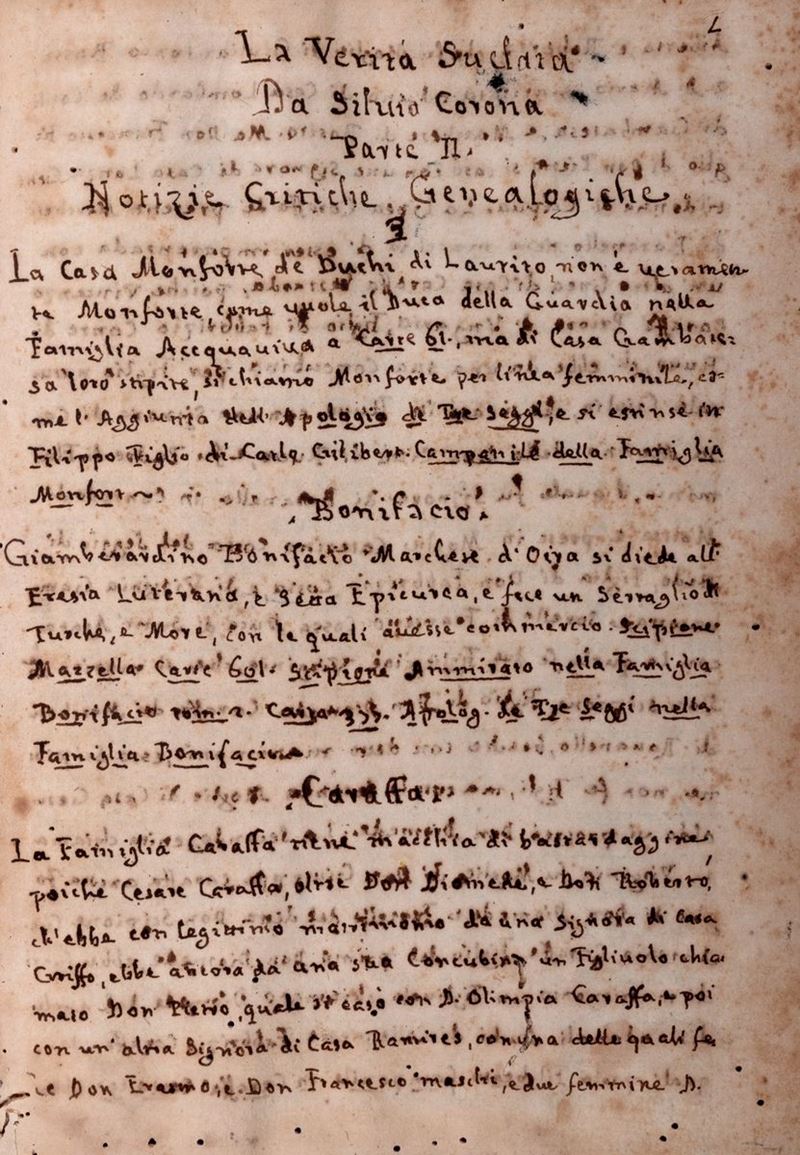 2
La Verità Sudata
Da Silvio Corona
Parte II.
Notizie Critiche, Genealogiche,
La Casa Monforte de Duchi di Laurito non è veramen
te Monforte, come vuole il Duca della Guardia nella
Famiglia Accquaviva a Carte 61., ma di Casa Gambacor
ta loro stipite, si chiamò Monforte per linea femminile, co
me l' Aggiunta dell' Apologia di Tre Seggi, e si estinse in
Filippo Figlio di Carlo Giliberto Campanile della Famiglia
Monfort
Bonifacio.
Giambernardino Bonifacio Marchese d' Oira si diede all'
Eresia Luterana, e Setta Epicurea, e fece un Serraglio di
Turche, e More, con le quali avesse commercio. Scipione
Mazzella Carte 601. Scipione Ammirato nella Famiglia
Bonifacio Apolog. di Tre Seggi nella
Famiglia Bonifacio
Caraffa
La Famiglia Caraffa
poiché Cesare Caraffa, oltre Don Diomede, e Don Roberto,
ch' ebbe con legittimo matrimonio da una Signora di Casa
Griffo, ebbe ancora da una sua Concubina un Figliuolo chia
mato Don quale si casò con D. Olimpia Caraffa, e poi
con un' altra Signora di Casa Ramires, con una delle quali fe
ce Don Erasmo, e Don Francesco maschi, e due femmine D.